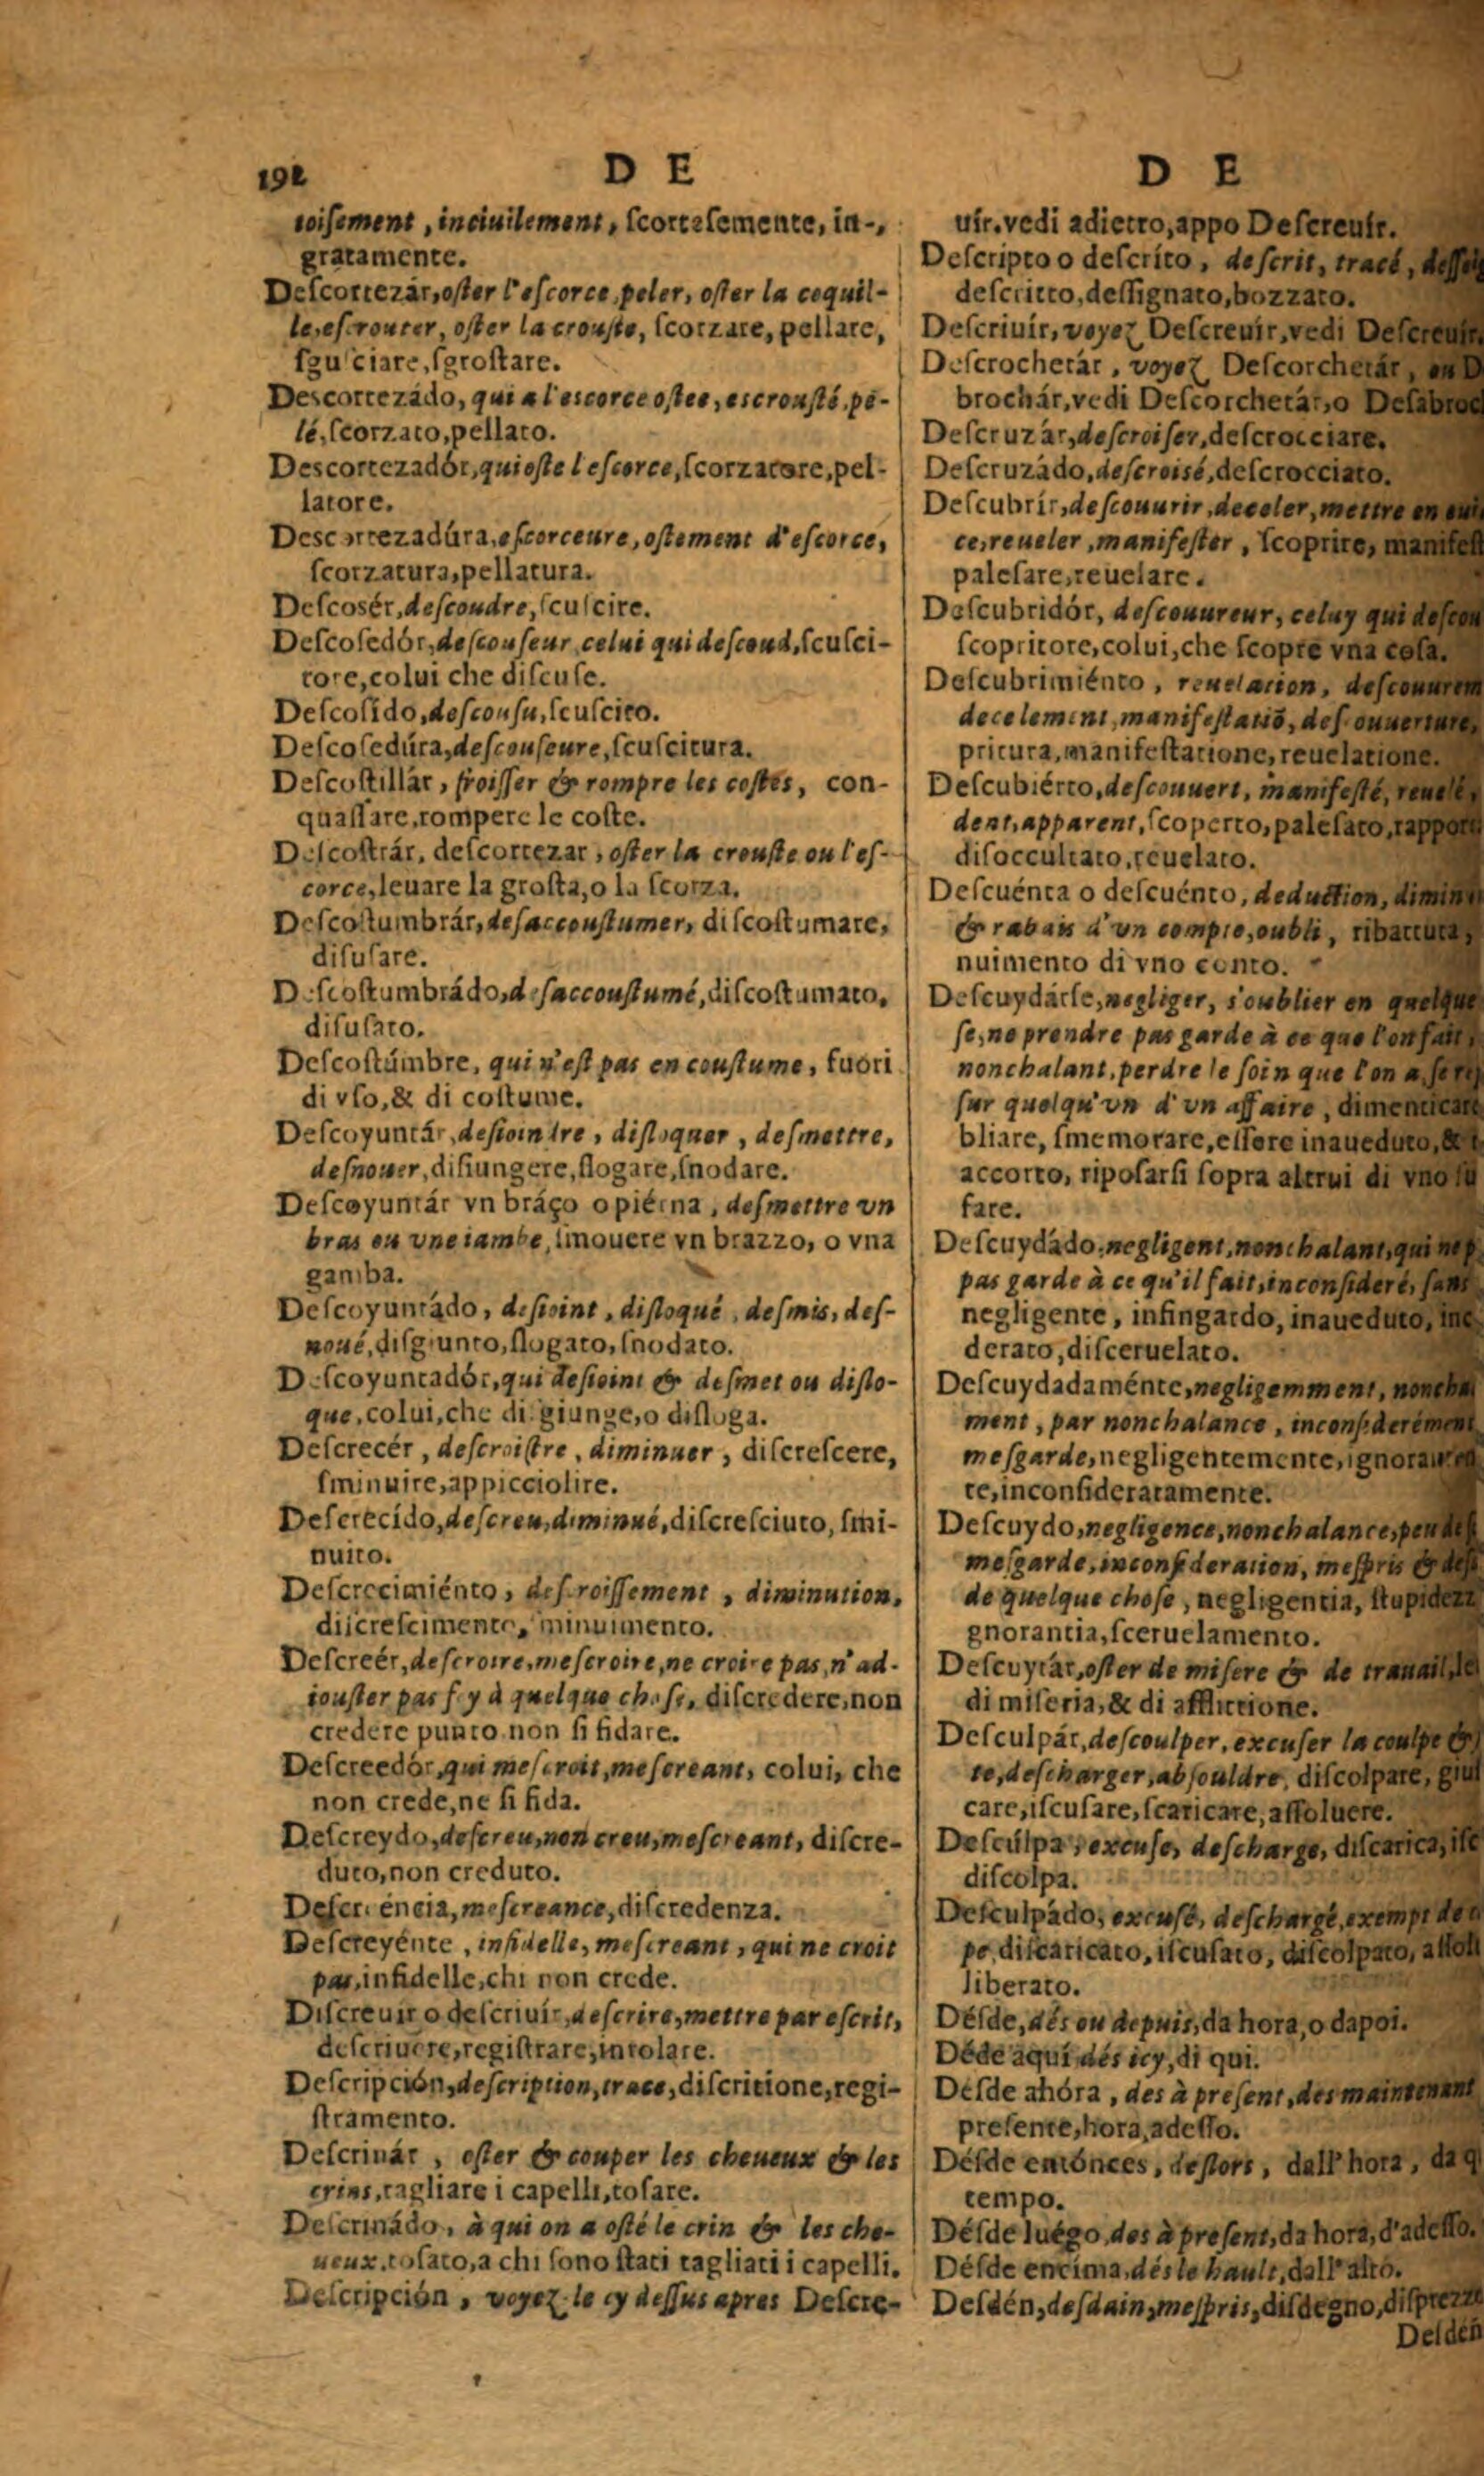 192 D E D E
toisement, inciuilement, ſcortesemente, in-
gratamente.
Deſcortezár, oſter l'eſcorce, peler, oſter la coquil-
le, eſcrouter, oſter la crouſte, ſcorzare, pellare,
ſguſciare, ſgroſtare.
Descortezádo, qui a l'escorce oſtee, escrouſté, pe-
lé, ſcorzato, pellato.
Descortezadór, qui oſte l'eſcorce, ſcorzatore, pel-
latore.
Descortezadúra, eſcorceure, oſtement d'eſcorce,
ſcorzatura, pellatura.
Deſcosér, deſcoudre, ſcuſcire.
Deſcoſedór, deſcouſeur, celui qui deſcoud, ſcuſci-
tore, colui che diſcuſe.
Deſcoſido, deſcouſu, ſcuſcito.
Deſcoſedúra, deſcouſeure, ſcuſcitura.
Deſcoſtillár, froiſſer & rompre les coſtes, con-
quaſſare, rompere le coſte.
Deſcoſtrár, deſcortezar, oſter la crouſte ou l'eſ-
corce, leuare la groſta, o la ſcorza.
Deſcoſtumbrár, deſaccouſtumer, diſcoſtumare,
diſuſare.
Deſcoſtumbrádo, deſaccouſtumé, diſcoſtumato,
diſuſato.
Deſcoſtúmbre, qui n'eſt pas en couſtume, fuori
di vſo, & di coſtume.
Deſcoyuntár, deſioindre, diſloquer, deſmettre,
deſnouer, diſiungere, ſlogare, ſnodare.
Deſcoyuntár vn bráço o piérna, deſmettre vn
bras ou vne iambe, ſmouere vn brazzo, o vna
gamba.
Deſcoyuntádo, deſioint, diſloqué, deſmis, deſ-
noué, diſgiunto, ſlogato, ſnodato.
Deſcoyuntadór, qui deſioint & deſmet ou diſlo-
que, colui, che diſgiunge, o diſloga.
Deſcrecér, deſcroiſtre, diminuer, diſcreſcere,
ſminuire, appicciolire.
Deſcrecído, deſcreu, diminué, diſcreſciuto, ſmi-
nuito.
Deſcrecimiénto, deſcroiſſement, diminution,
diſcreſcimento, ſminuimento.
Deſcreér, deſcroire, meſcroire, ne croire pas, n'ad-
iouſter pas foy à quelque choſe, diſcredere, non
credere punto non ſi fidare.
Deſcreedór, qui meſcroit, meſcreant, colui, che
non crede, ne ſi fida.
Deſcreydo, deſcreu, non creu, meſcreant, diſcre-
duto, non creduto.
Deſcreéncia, meſcreance, diſcredenza.
Deſcreyénte, infidelle, meſcreant, qui ne croit
pas, infidelle, chi non crede.
Diſcreuir o deſcriuír, deſcrire, mettre par eſcrit,
deſcriuere, regiſtrare, intolare.
Deſcripción, deſcription, trace, diſcritione, regi-
ſtramento.
Deſcrinár, oſter & couper les cheueux & les
crins, tagliare i capelli, toſare.
Deſcrinádo, à qui on a oſté le crin & les che-
ueux, toſato, a chi ſono ſtati tagliati i capelli.
Deſcripción, voyez le cy deſſus apres Deſcre-
uír. vedi adietro, appo Deſcreuír.
Deſcripto o deſcríto, deſcrit, tracé,
deſcritto, deſſignato, bozzato.
Deſcriuír, voyez Deſcreuír, vedi Deſcreuír.
Deſcrochetár, voyez Deſcorchetár, ou D
brochár, vedi Deſcorchetár, o Deſabroc
Deſcruzár, deſcroiſer, deſcrocciare.
Deſcruzádo, deſcroisé, deſcrocciato.
Deſcubrír, deſcouurir, deceler, mettre en eui
ce, reueler, manifeſter, ſcoprire, manifeſt
paleſare, reuelare.
Deſcubridór, deſcouureur, celuy qui deſcou
ſcopritore, colui, che ſcopre vna coſa.
Deſcubrimiénto, reuelation, deſcouurem
decelement, manifeſtatiõ, deſcouuerture,
pritura, manifeſtatione, reuelatione.
Deſcubiérto, deſcouuert, manifeſté, reuelé,
dent, apparent, ſcoperto, paleſato, rapport
diſoccultato, reuelato.
Deſcuénta o deſcuénto, deduction, diminu
& rabais d'vn compte, oubli, ribattuta,
nuimento di vno conto.
Deſcuydárſe, negliger, s'oublier en quelque
ſe, ne prendre pas garde à ce que l'on fait,
nonchalant, perdre le ſoin que l'on a, ſe
ſur quelqu'vn d'vn affaire, dimenticare
bliare, ſmemorare, eſſere inaueduto, &
accorto, ripoſarſi ſopra altrui di vno ſu
fare.
Deſcuydádo, negligent, nonchalant, qui ne p
pas garde à ce qu'il fait, inconſideré, ſans
negligente, infingardo, inaueduto, inc
derato, diſceruelato.
Deſcuydadaménte, negligemment, noncha
ment, par nonchalance, inconſiderément
meſgarde, negligentemente,
te, inconſideratamente.
Deſcuydo, negligence, nonchalance, peu de
meſgarde, inconſideration, meſpris &
de quelque choſe, negligentia, ſtupidezz
gnorantia, ſceruelamento.
Deſcuytár, oſter de miſere & de trauail, le
di miſeria, & di afflittione.
Deſculpár, deſcoulper, excuſer la coulpe &
te, deſcharger, abſouldre, diſcolpare, giuſ
care, iſcuſare, ſcaricare, aſſoluere.
Deſcúlpa, excuſe, deſcharge, diſcarica, iſc
diſcolpa.
Deſculpádo, excuſé, deſchargé, exempt de
pe, diſcaricato, iſcuſato, diſcolpato, aſſol
liberato.
Déſde, dés ou depuis, da hora, o dapoi.
Déde aquí, dés icy, di qui.
Déſde ahóra, des à preſent, des maintenant
preſente, hora, adeſſo.
Déſde entónces, deſlors, dall'hora, da q
tempo.
Déſde luégo, des à preſent, da hora, d'adeſſo.
Déſde encima, dés le hault, dall'alto.
Deſdén, deſdain, meſpris, diſdegno, diſprezzo
Deſdeñ